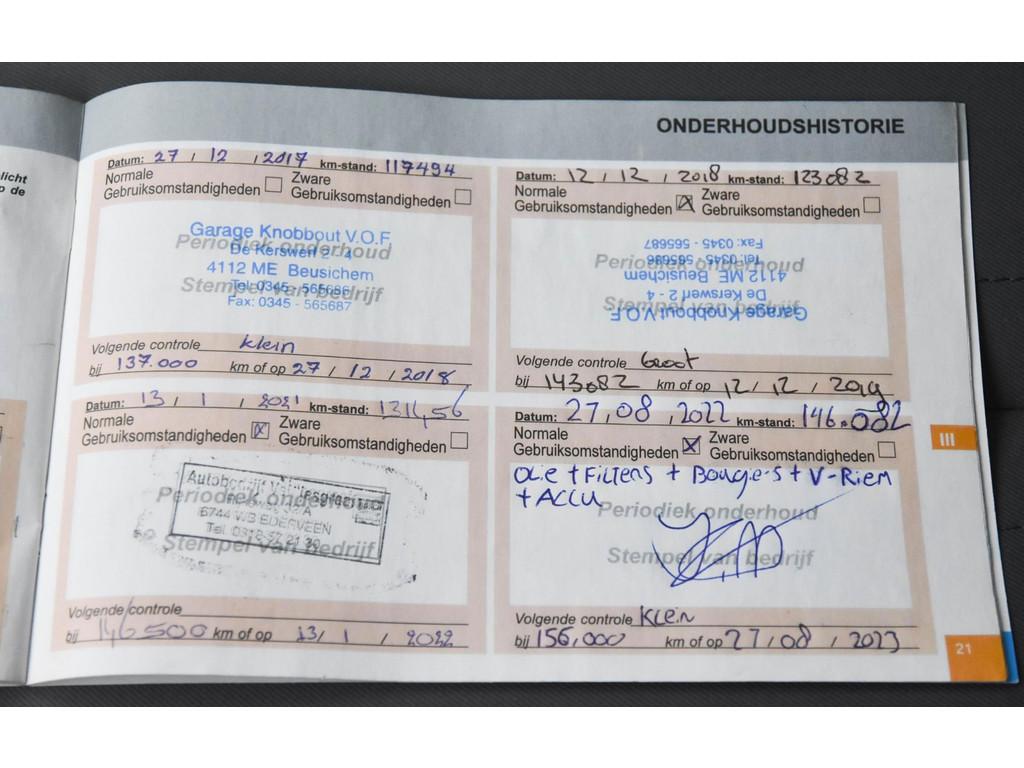 licht
p de
ONDERHOUDSHISTORIE
Datum: 27 / 12 / 2017 km-stand: 117494
Normale
Gebruiksomstandigheden
Zware
Gebruiksomstandigheden
Periodiek onderhoud
Stempel van bedrijf
Garage Knobbout V.O.F
De Kerswerf 2 - 4
4112 ME Beusichem
Tel: 0345 - 565686
Fax: 0345 - 565687
Volgende controle klein
bij 137.000 km of op 27 / 12 / 2018
Datum: 12 / 12 / 2018 km-stand: 123082
Normale
Gebruiksomstandigheden
Zware
Gebruiksomstandigheden
Periodiek onderhoud
Stempel van bedrijf
Garage Knobbout V.O.F
De Kerswerf 2 - 4
4112 ME Beusichem
Tel: 0345 - 565686
Fax: 0345 - 565687
Volgende controle Groot
bij 143.082 km of op 12 / 12 / 2019
Datum: 13 / 1 / 2021 km-stand: 131456
Normale
Gebruiksomstandigheden
Zware
Gebruiksomstandigheden
Periodiek onderhoud
Stempel van bedrijf
Autobedrijf
6744 WB EDERVEEN
Tel. 0318 57 21 30
Volgende controle
bij 146500 km of op 13 / 1 / 2022
Datum: 27 / 08 / 2022 km-stand: 146.082
Normale
Gebruiksomstandigheden
Zware
Gebruiksomstandigheden
OLie + Filters + Bougie-s + V-Riem
+ ACCU
Periodiek onderhoud
Stempel van bedrijf
Volgende controle Klein
bij 156,000 km of op 27 / 08 / 2023
III
21